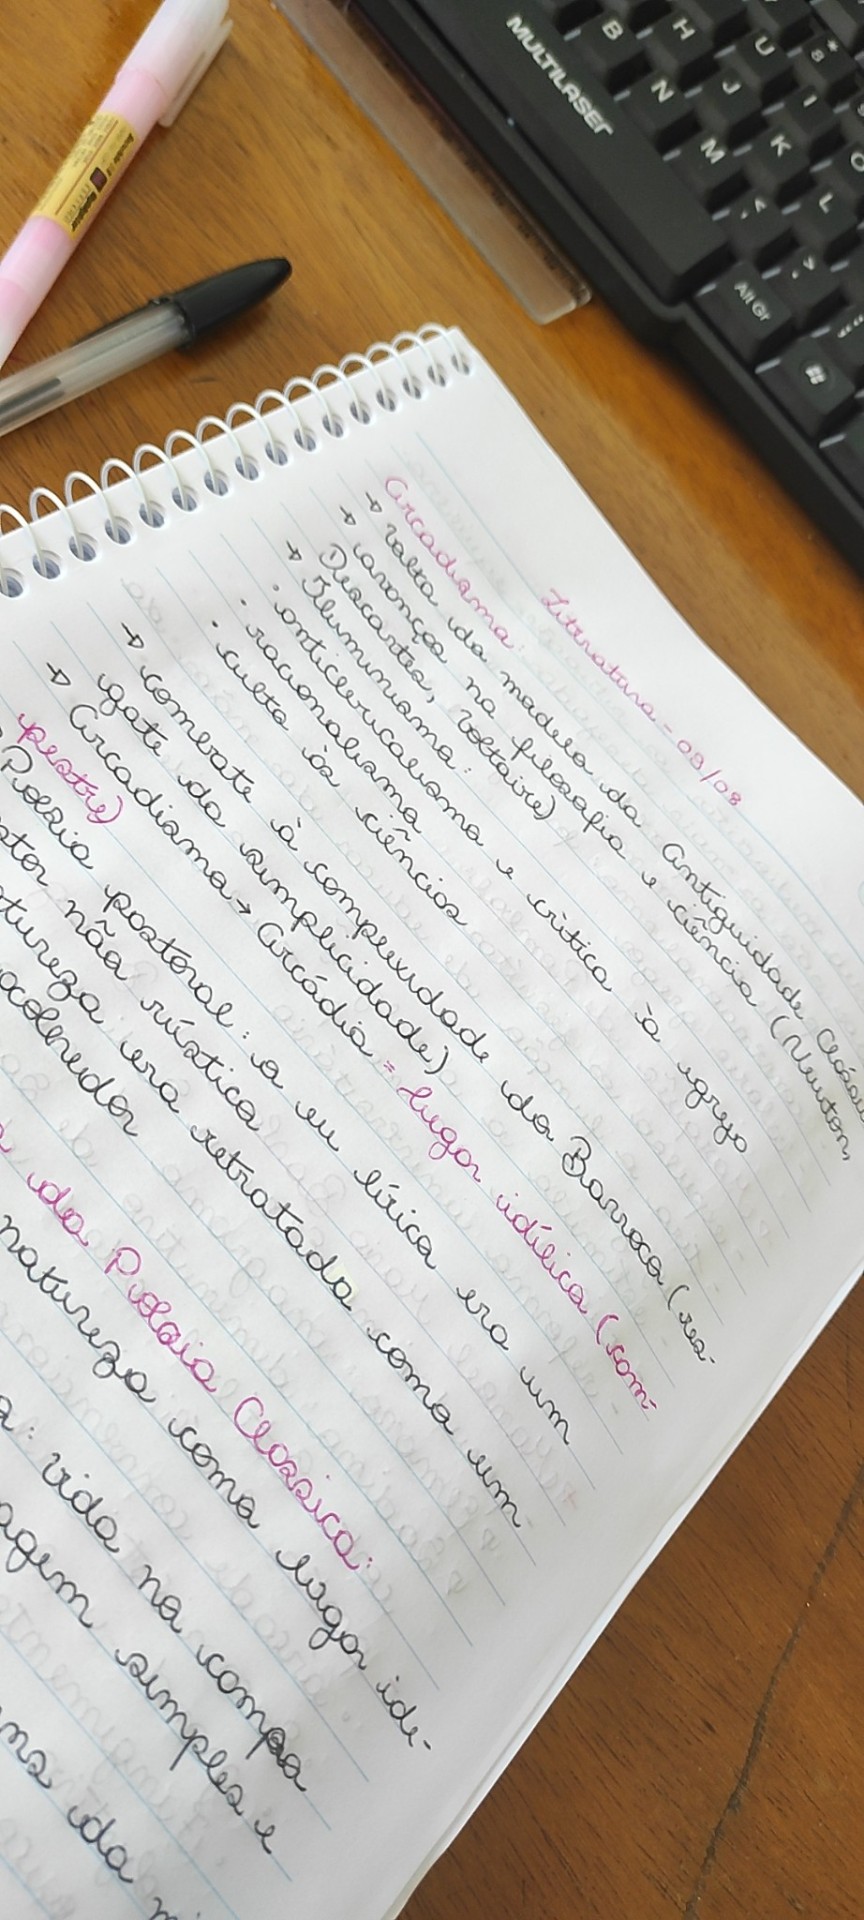 Literatura - 09/08
Arcadismo:
→ volta do modelo da Antiguidade
→ crença na filosofia e ciência (Newton,
Descartes, Voltaire)
→ Iluminismo:
· anticlericalismo e crítica à igreja
· racionalismo
· culto às ciências
→ combate à complexidade do Barroco (res-
gate da simplicidade)
→ Arcadismo → Arcádia = lugar idílico (cam-
pestre)
Poesia pastoral: o eu lírico era um
não rústico
era retratada como um
acolhedor
da Poesia Clássica:
natureza como lugar ide-
vida no campo
simples e
da
MULTILASER
B H U 8 *
N J I
M K O
, < L
Alt Gr